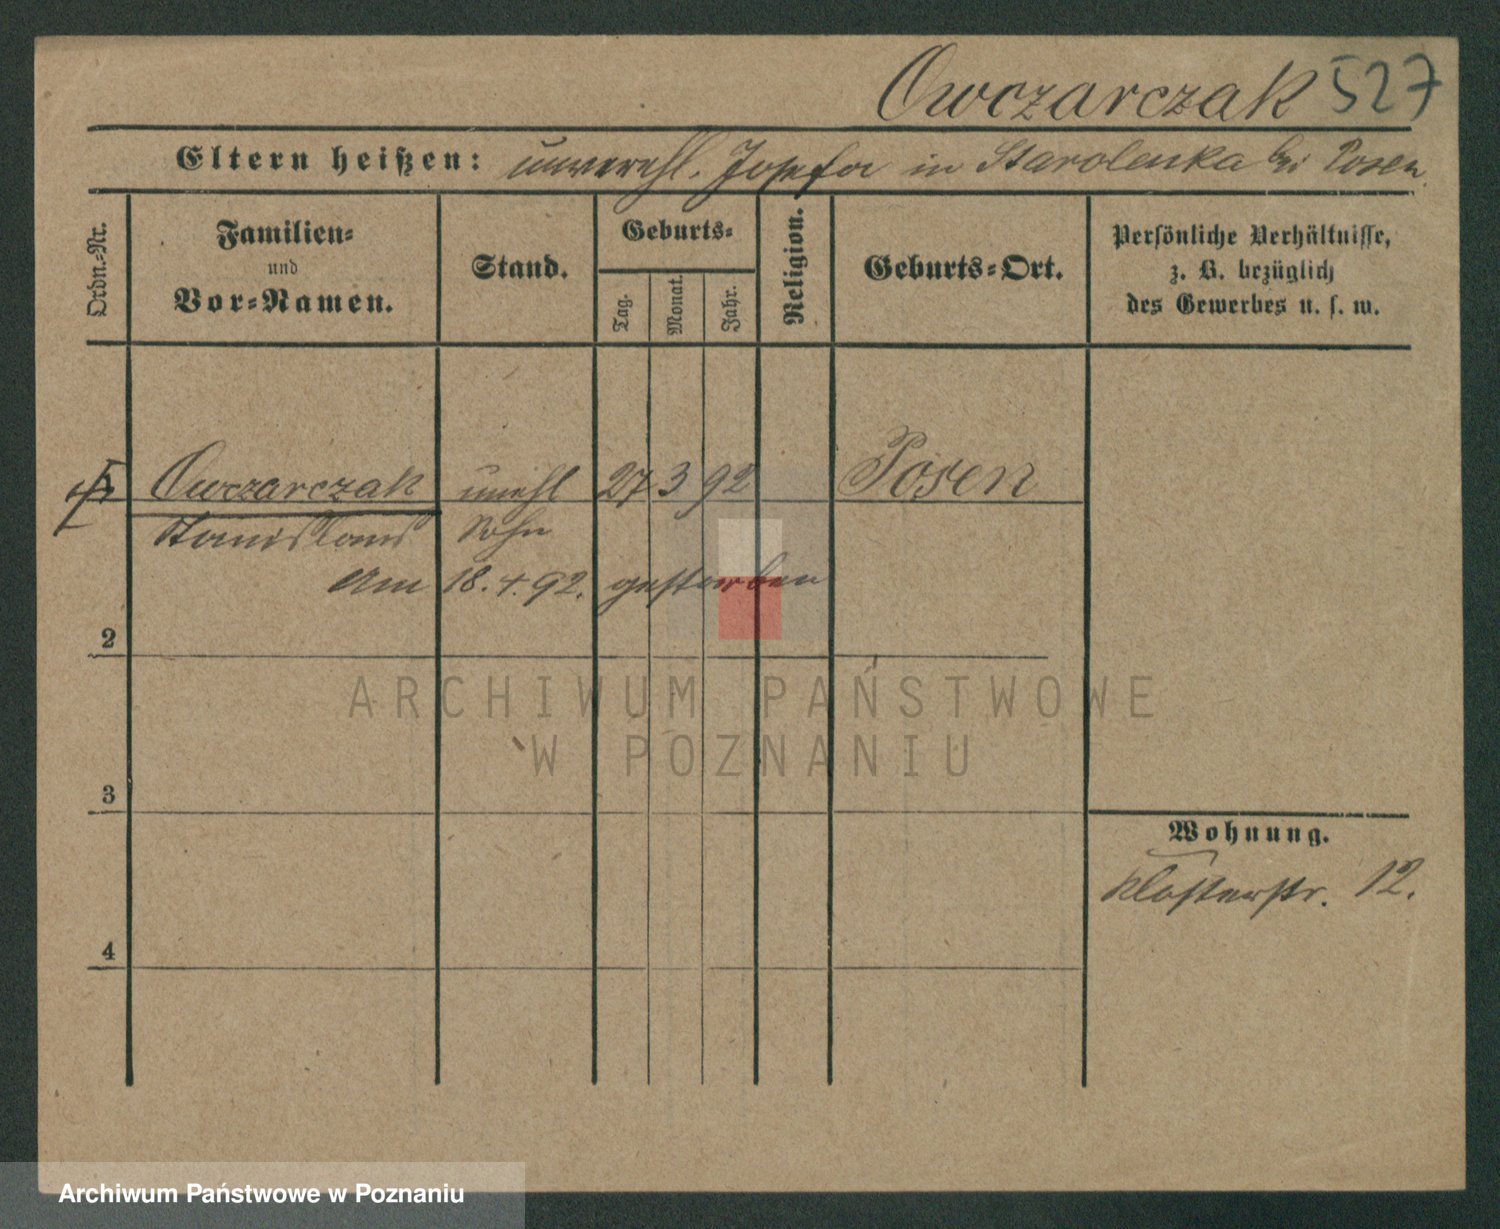 Owczarczak 527
Eltern heißen: unverehl. Josefa in Starolenka bei Posen
Ordn.-Nr.
Familien-
und
Vor-Namen.
Stand.
Geburts-
Tag.
Monat.
Jahr.
Religion.
Geburts-Ort.
Persönliche Verhältnisse,
z. B. bezüglich
des Gewerbes u. s. w.
Owczarczak unehl 27 3 92 Posen
Stanislaus Sohn
Am 18. 4. 92. gestorben
2
ARCHIWUM PAŃSTWOWE
W POZNANIU
3
Wohnung.
Klosterstr. 12.
4
Archiwum Państwowe w Poznaniu